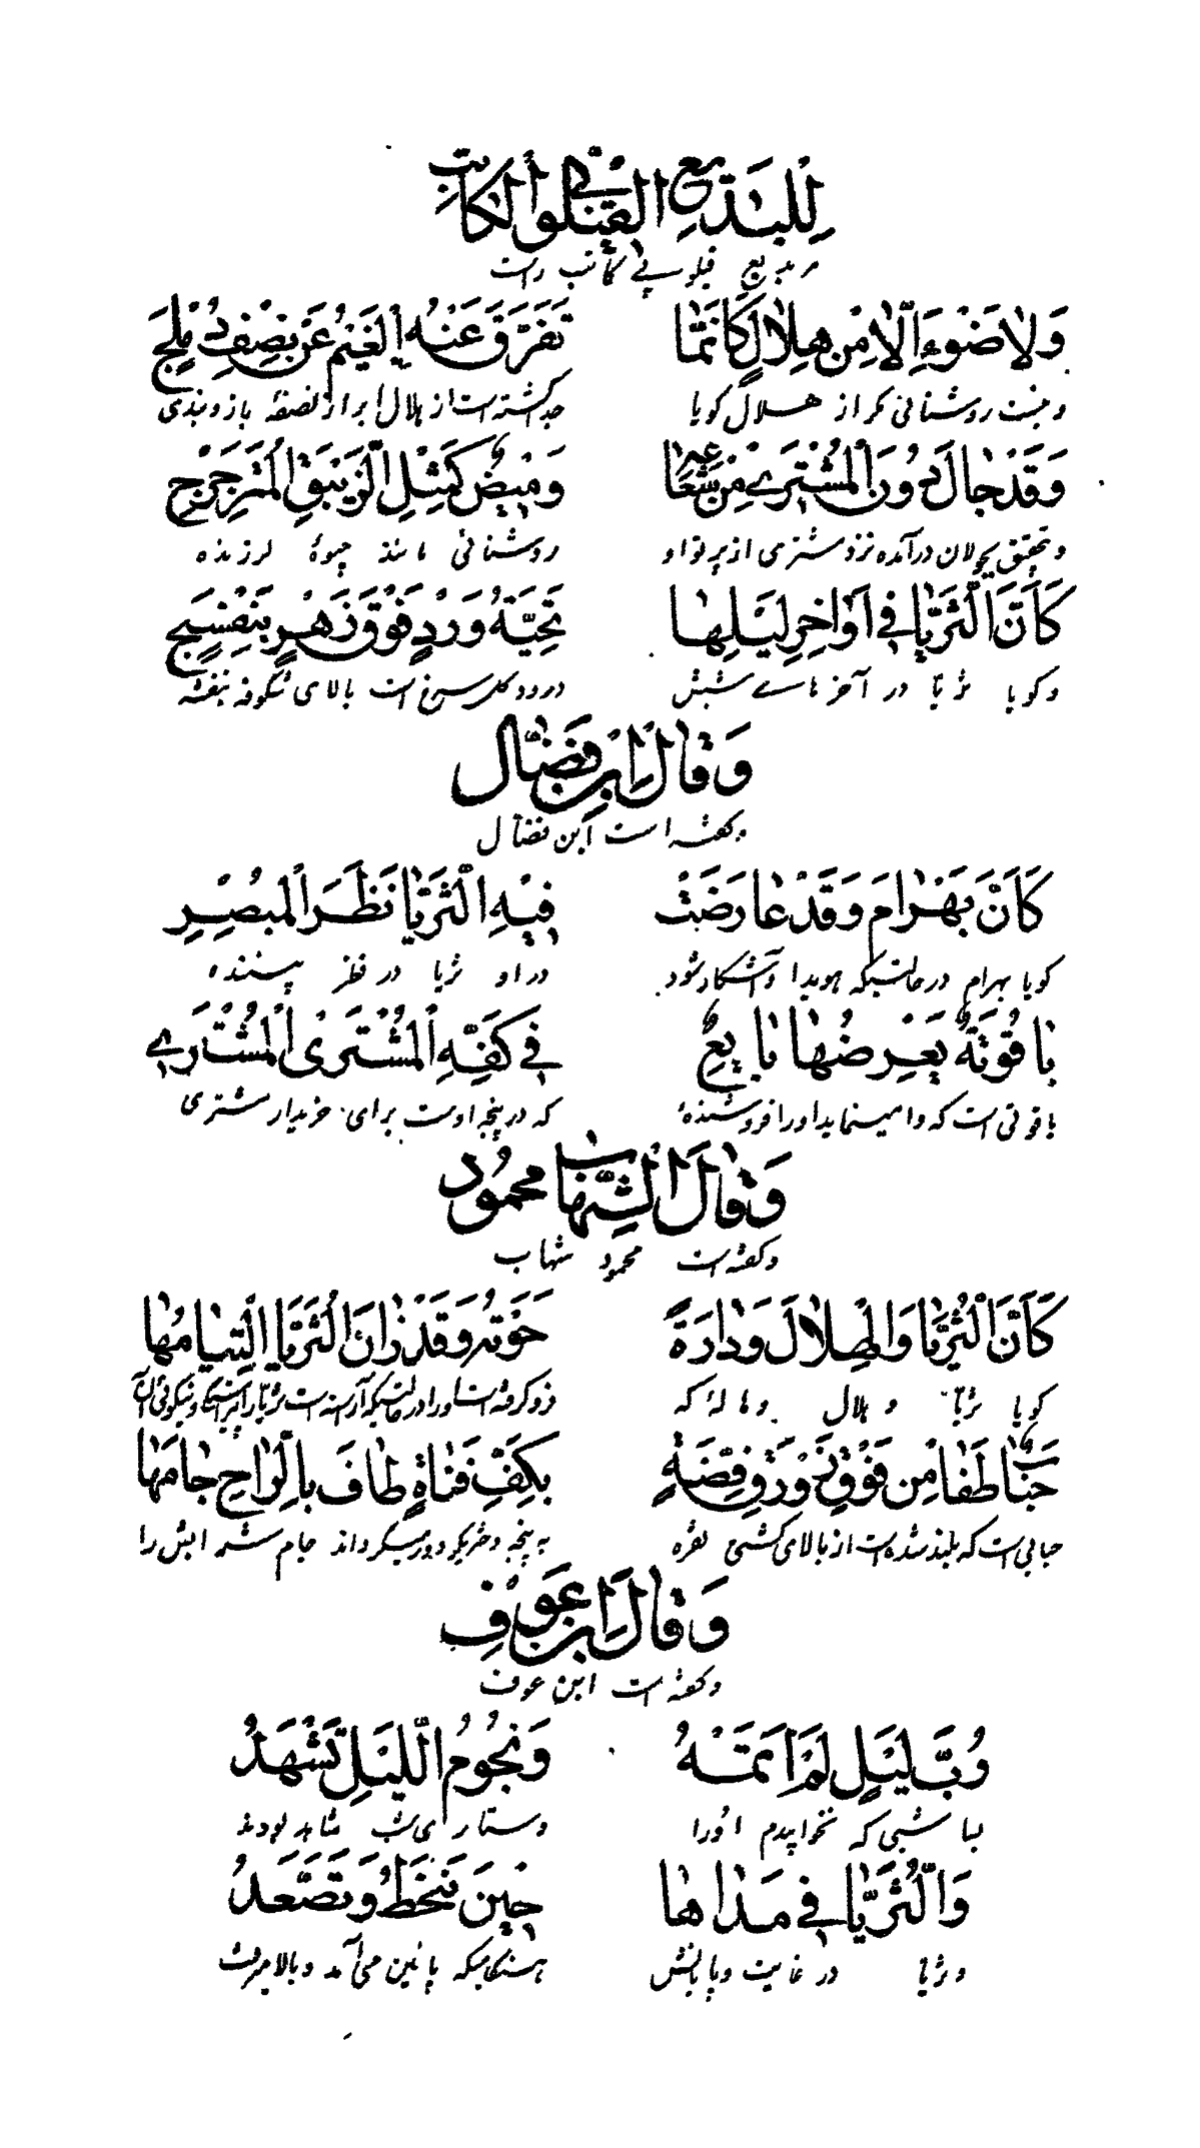 لِلْبَدِيعِ الْقَيْلَوِيِّ الْكَاتِبِ
مر بدیع قیلویی کاتب راست
وَلَا ضَوْءَ إِلَّا مِنْ هِلَالٍ كَأَنَّمَا تَفَرَّقَ عَنْهُ الْغَيْمُ عَنْ نِصْفِ دُمْلُجِ
و نیست روشنائی مگر از هلال گویا جدا گشته است از هلال ابر از نصفهٔ بازوبندی
وَقَدْ حَالَ دُونَ الْمُشْتَرِي مِنْ شُعَاعِهِ وَمِيضٌ كَمِثْلِ الزِّيبَقِ الْمُتَرَجْرِجِ
و بتحقیق بجولان درآمده نزد مشتری از پرتو او روشنائی مانند جیوهٔ لرزنده
كَأَنَّ الثُّرَيَّا فِي أَوَاخِرِ لَيْلِهَا تَحِيَّةُ وَرْدٍ فَوْقَ زَهْرِ بَنَفْسَجِ
و گویا ثریا در آخرهای شبش درود گل سرخ است بالای شکوفه بنفشه
وَقَالَ ابْنُ فَضَّال
و گفته است ابن فضال
كَأَنَّ بَهْرَامَ وَقَدْ عَارَضَتْ فِيْهِ الثُّرَيَّا نَظَرَ الْمُبْصِرِ
گویا بهرام در حالتیکه هویدا و آشکار شود در او ثریا در نظر بیننده
يَاقُوتَةٌ يَعْرِضُهَا بَايِعٌ فِي كَفِّهِ الْمُشْتَرَى الْمُشْتَرِي
یاقوتی است که وا مینماید او را فروشندهٔ که در پنجه اوست برای خریدار مشتری
وَقَالَ الشِّهَابُ مَحْمُود
و گفته است محمود شهاب
كَأَنَّ الثُّرَيَّا وَالْهِلَالَ وَدَارَةً حَوَتْهُ وَقَدْ زَانَ الثُّرَيَّا الْتِيَامُهَا
گویا ثریا و هلال و هالهٔ که فرو گرفته است او را در حالتیکه آراسته است ثریا را
حَبَابٌ طَفَا مِنْ فَوْقِ زَوْرَقِ فِضَّةٍ بِكَفِّ فَتَاةٍ طَافَ بِالرَّاحِ جَامُهَا
حبابی است که بلند شده است از بالای کشتی نقره به پنجه دختریکه دور میگرداند جام شرابش را
وَقَالَ ابْنُ عَوْفٍ
و گفته است ابن عوف
رُبَّ لَيْلٍ لَمْ أَنَمْهُ وَنُجُومُ اللَّيْلِ تَشْهَدُ
بسا شبی که نخوابیدم او را و ستارهای شب شاهد بودند
وَالثُّرَيَّا فِي مَدَاهَا حِينَ تَنْحَطُّ وَتَصْعَدُ
و ثریا در غایت و پایانش هنگامیکه پائین می آمد و بالا میرفت